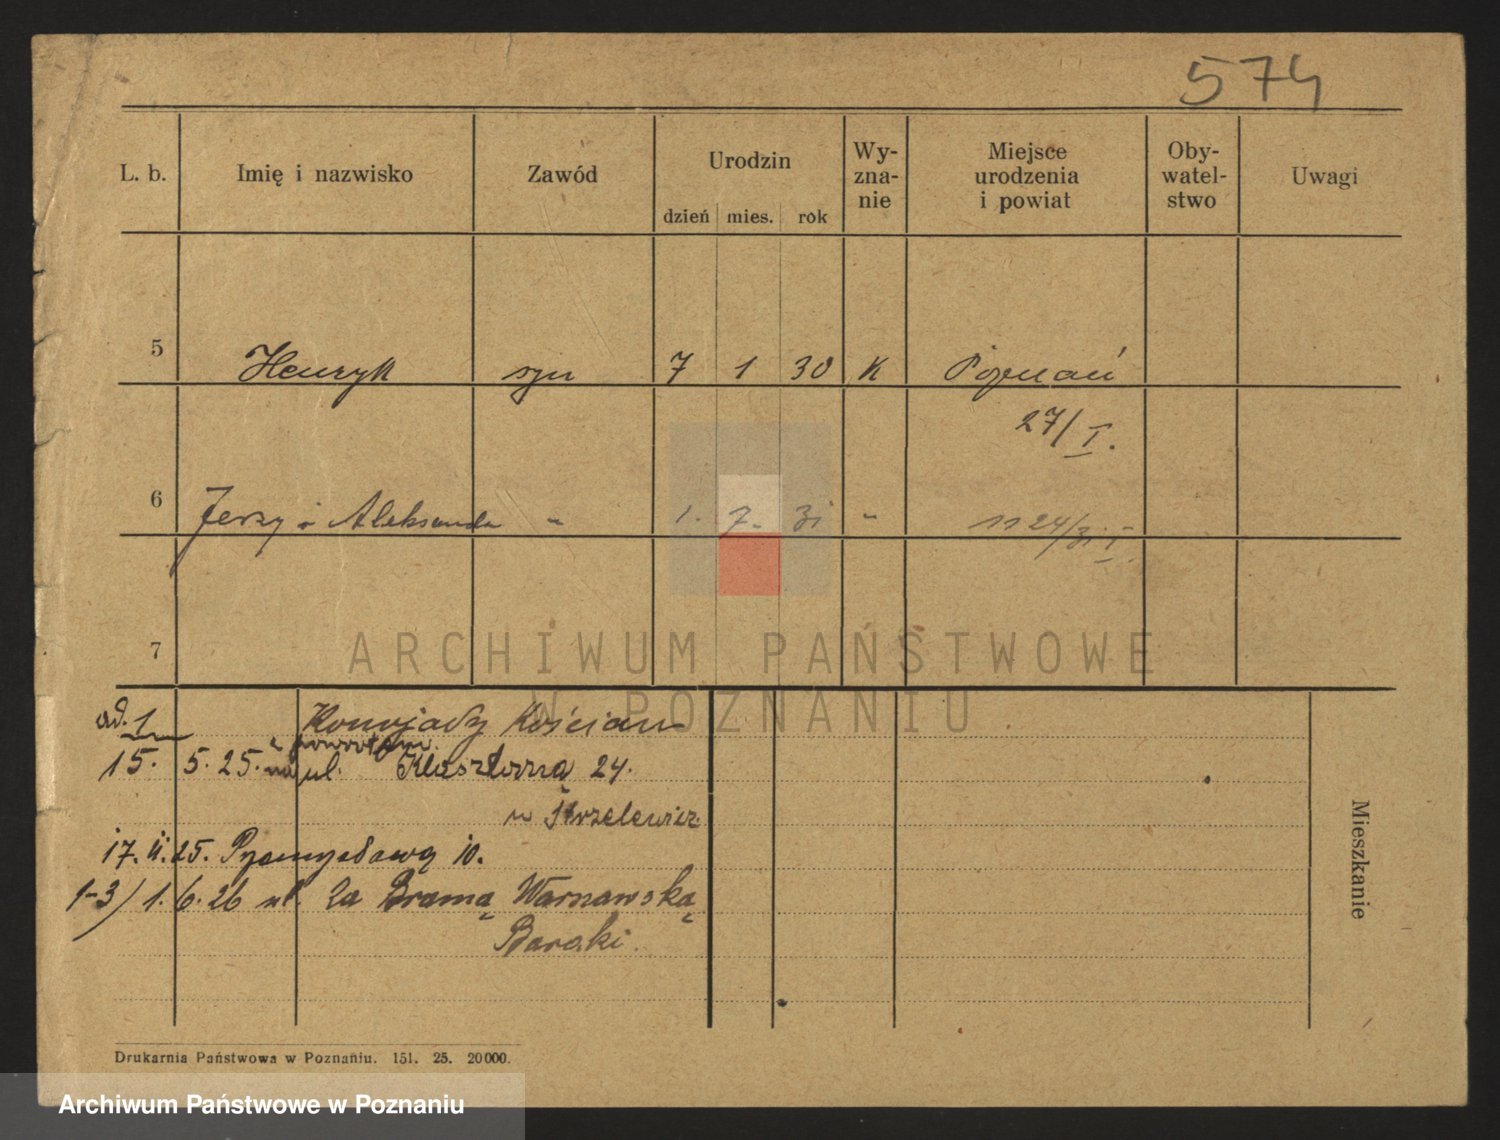 574
L. b. Imię i nazwisko Zawód Urodzin dzień mies. rok Wy-zna-nie Miejsce urodzenia i powiat Oby-watel-stwo Uwagi
5 Henryk syn 7 1 30 K Poznań
27/I.
6 Jerzy i Aleksander " 1. 7. 31 " 11 24/31 I.
7
ARCHIWUM PAŃSTWOWE
W POZNANIU
ad. 1 Konojady Kościan
z powrotem
15. 5. 25. na ul. Klasztorną 24.
u Strzelewicz
17. 11. 25. Przemysława 10.
1-3) 1. 6. 26 ul. Za Bramą Warszawską
Baraki.
Mieszkanie
Drukarnia Państwowa w Poznaniu. 151. 25. 20000.
Archiwum Państwowe w Poznaniu